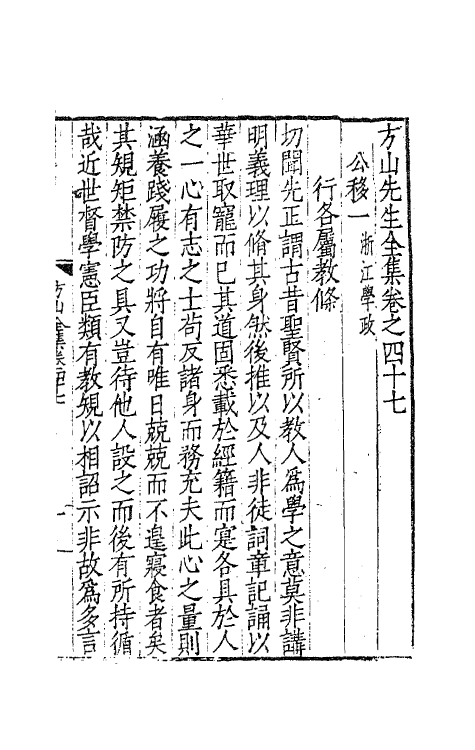 方山先生全集卷之四十七
公移一 浙江學政
行各屬教條
切聞先正謂古昔聖賢所以教人爲學之意莫非講
明義理以脩其身然後推以及人非徒詞章記誦以
華世取寵而已其道固悉載於經籍而寔各具於人
之一心有志之士苟反諸身而務充夫此心之量則
涵養踐履之功將自有唯日兢兢而不遑寢食者矣
其規矩禁防之具又豈待他人設之而後有所持循
哉近世督學憲臣類有教規以相詔示非故爲多言
方山全集卷四七 一